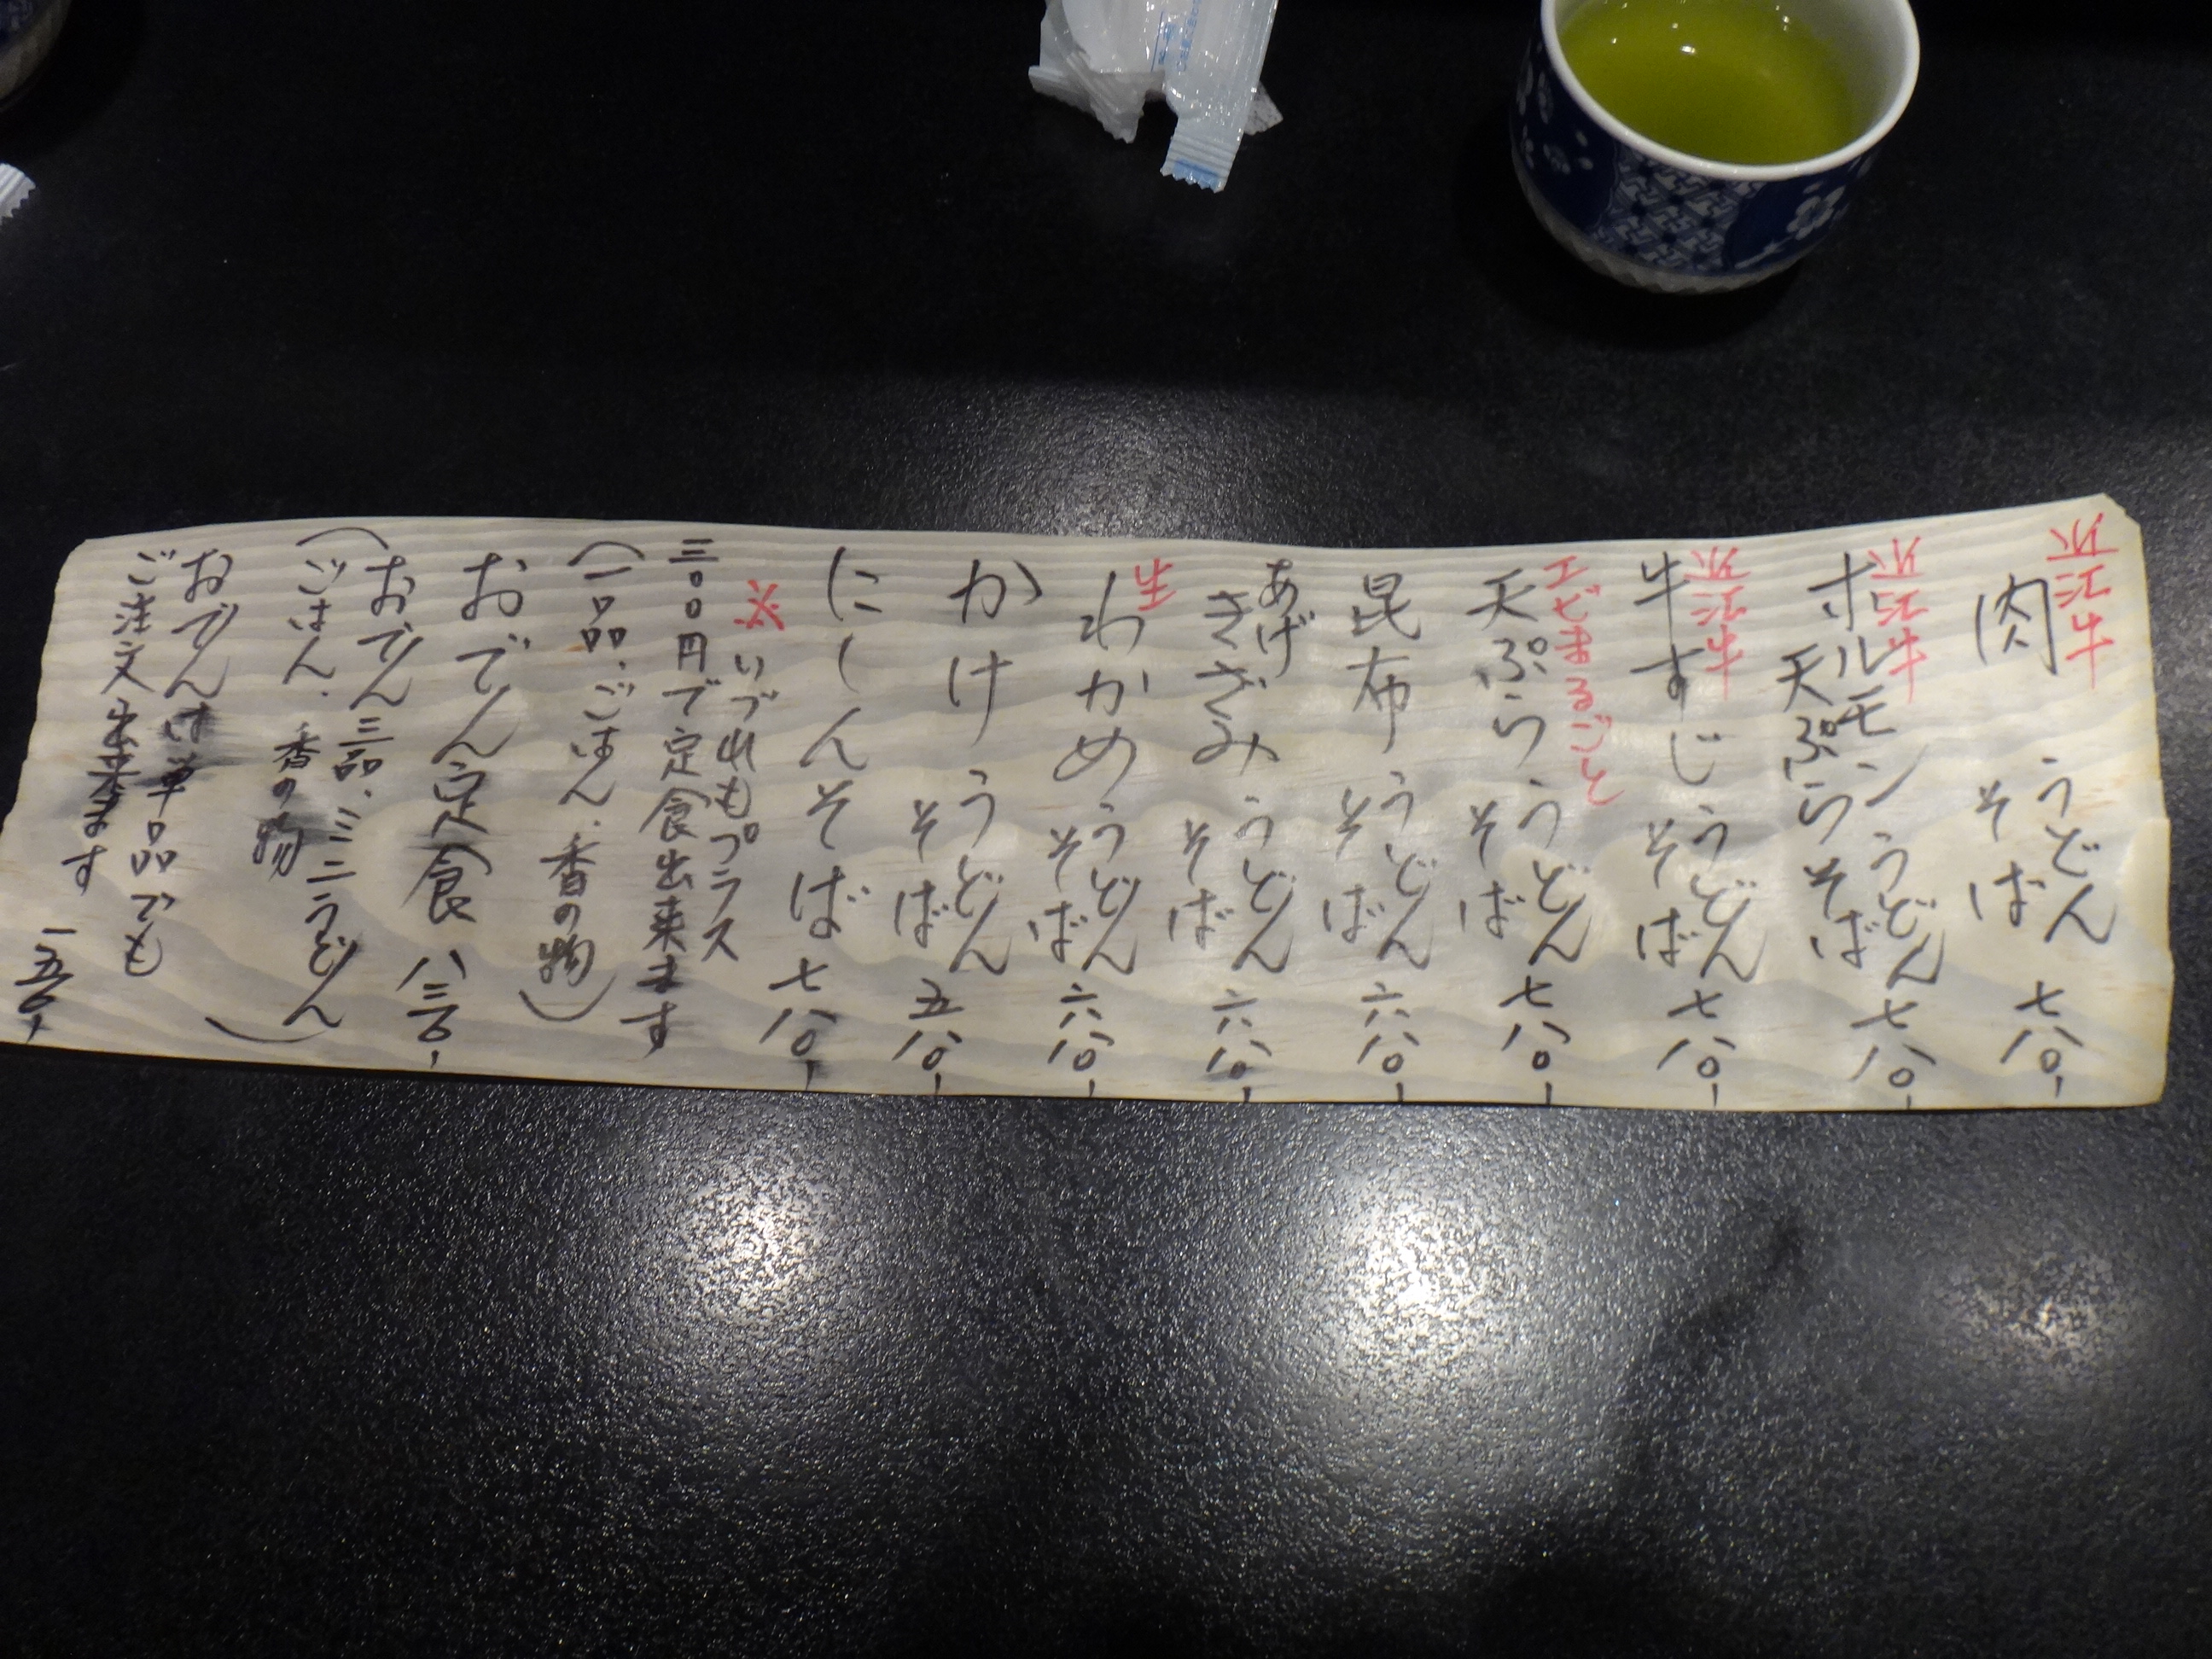 近江牛
肉 うどん そば 七八〇、
近江牛
ホルモン天ぷら うどん そば 七八〇、
近江牛
牛すじ うどん そば 七八〇、
エビまるごと
天ぷら うどん そば 七八〇、
昆布 うどん そば 六八〇、
あげ
きざみ うどん そば 六八〇、
生
わかめ うどん そば 六八〇、
かけ うどん そば 五八〇、
にしんそば 七八〇、
※いづれもプラス
三〇〇円で定食出来ます
(一品、ごはん、香の物)
おでん定食 八三〇、
(おでん三品、ミニうどん
ごはん、香の物)
おでんは単品でも
ご注文出来ます 一五〇、